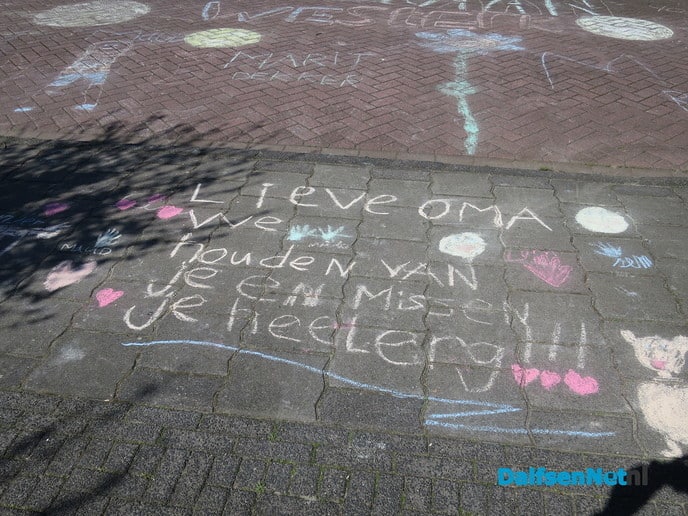 MARIT
DEKKER
LIEVE OMA
We
houden VAN
je en Missen
je heel erg!!!
DalfsenNet.nl